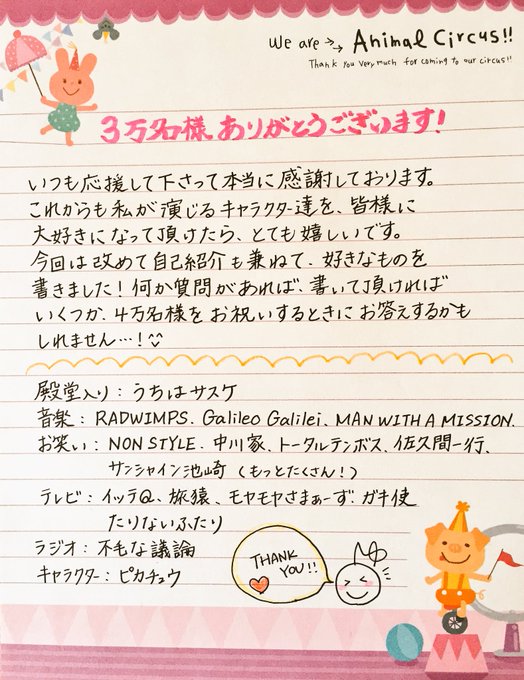 We are → → Animal Circus!!
Thank you very much for coming to our circus!!
3万名様、ありがとうございます!
いつも応援して下さって本当に感謝しております。
これからも私が演じるキャラクター達を、皆様に
大好きになって頂けたら、とても嬉しいです。
今回は改めて自己紹介も兼ねて、好きなものを
書きました!何か質問があれば、書いて頂ければ
いくつか、4万名様をお祝いするときにお答えするかも
しれません…!
殿堂入り:うちはサスケ
音楽:RADWIMPS. Galileo Galilei、MAN WITH A MISSION.
お笑い:NON STYLE、中川家、トータルテンボス、佐久間一行、
サンシャイン池崎(もっとたくさん!)
テレビ:イッテQ、旅猿、モヤモヤさまぁーず、ガキ使
たりないふたり
ラジオ:不毛な議論
キャラクター:ピカチュウ
THANK
YOU!!